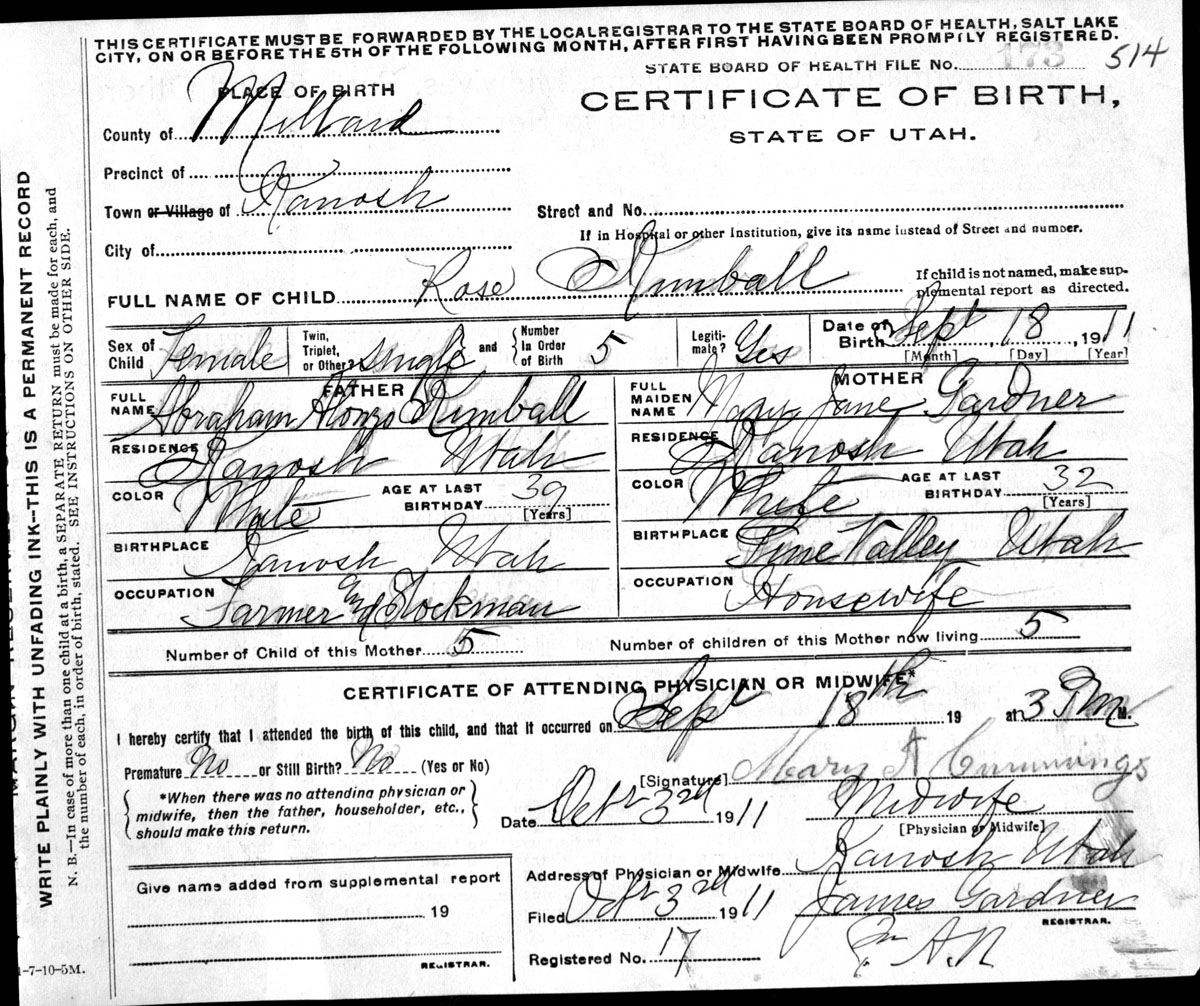 THIS CERTIFICATE MUST BE FORWARDED BY THE LOCAL REGISTRAR TO THE STATE BOARD OF HEALTH, SALT LAKE
CITY, ON OR BEFORE THE 5TH OF THE FOLLOWING MONTH, AFTER FIRST HAVING BEEN PROMPTLY REGISTERED.
STATE BOARD OF HEALTH FILE No. 173 514
PLACE OF BIRTH
CERTIFICATE OF BIRTH,
STATE OF UTAH.
County of Millard
Precinct of
Town or Village of Kanosh
Street and No.
If in Hospital or other Institution, give its name instead of Street and number.
City of
FULL NAME OF CHILD Rose Kimball
If child is not named, make supplemental report as directed.
Sex of Child Female
Twin, Triplet, or Other? Single and Number In Order of Birth 5
Legitimate? Yes
Date of Birth Sept 18, 1911
[Month] [Day] [Year]
FATHER
FULL NAME Abraham Alonzo Kimball
RESIDENCE Kanosh Utah
COLOR White
AGE AT LAST BIRTHDAY 39
[Years]
BIRTHPLACE Kanosh Utah
OCCUPATION Farmer and Stockman
MOTHER
FULL MAIDEN NAME Mary Jane Gardner
RESIDENCE Kanosh Utah
COLOR White
AGE AT LAST BIRTHDAY 32
[Years]
BIRTHPLACE Pine Valley Utah
OCCUPATION Housewife
Number of Child of this Mother 5
Number of children of this Mother now living 5
CERTIFICATE OF ATTENDING PHYSICIAN OR MIDWIFE*
I hereby certify that I attended the birth of this child, and that it occurred on Sept 18th 19 at 3 Pm M.
Premature No or Still Birth? No (Yes or No)
*When there was no attending physician or
midwife, then the father, householder, etc.,
should make this return.
[Signature] Mary A Cummings
Date Octr 3rd 1911
Midwife
[Physician or Midwife]
Address of Physician or Midwife Kanosh Utah
Filed Octr 3rd 1911 James Gardner
REGISTRAR.
Registered No. 17
Give name added from supplemental report
19
REGISTRAR.
WRITE PLAINLY WITH UNFADING INK—THIS IS A PERMANENT RECORD
N. B.—In case of more than one child at a birth, a SEPARATE RETURN must be made for each, and
the number of each, in order of birth, stated. SEE INSTRUCTIONS ON OTHER SIDE.
-7-10-5M.